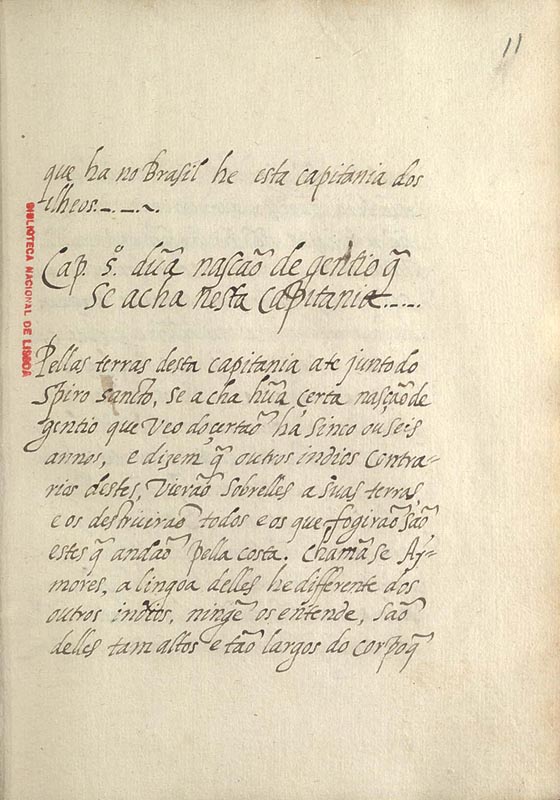 11
que ha no Brasil he esta capitania dos
ilheos._._~.
Cap. 5.º dũa nasção de gentio q̃
Se acha nesta Capitania._._
Pellas terras desta capitania ate junto do
Spiro sancto, se acha hũa certa nasção de
gentio que veo do certão há sinco ou seis
annos, e dizem q̃ outros indios contra-
rios destes, vierão sobrelles a suas terras,
e os destruirão todos e os que fogirão são
estes q̃ andão pella costa. Chamã se Ay-
mores, a lingoa delles he differente dos
outros indios, ningẽ os entende, são
delles tam altos e tão largos do corpo q̃
BIBLIOTECA NACIONAL DE LISBOA